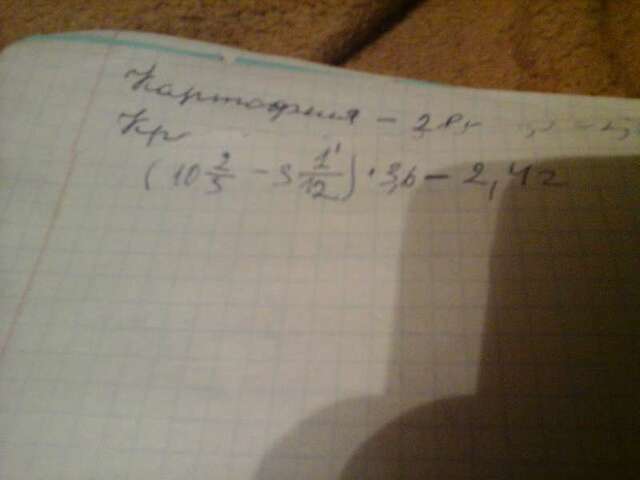 Картофеля – 2
Кр
(10 2/5 – 9 1/12) · 3,6 – 2,42